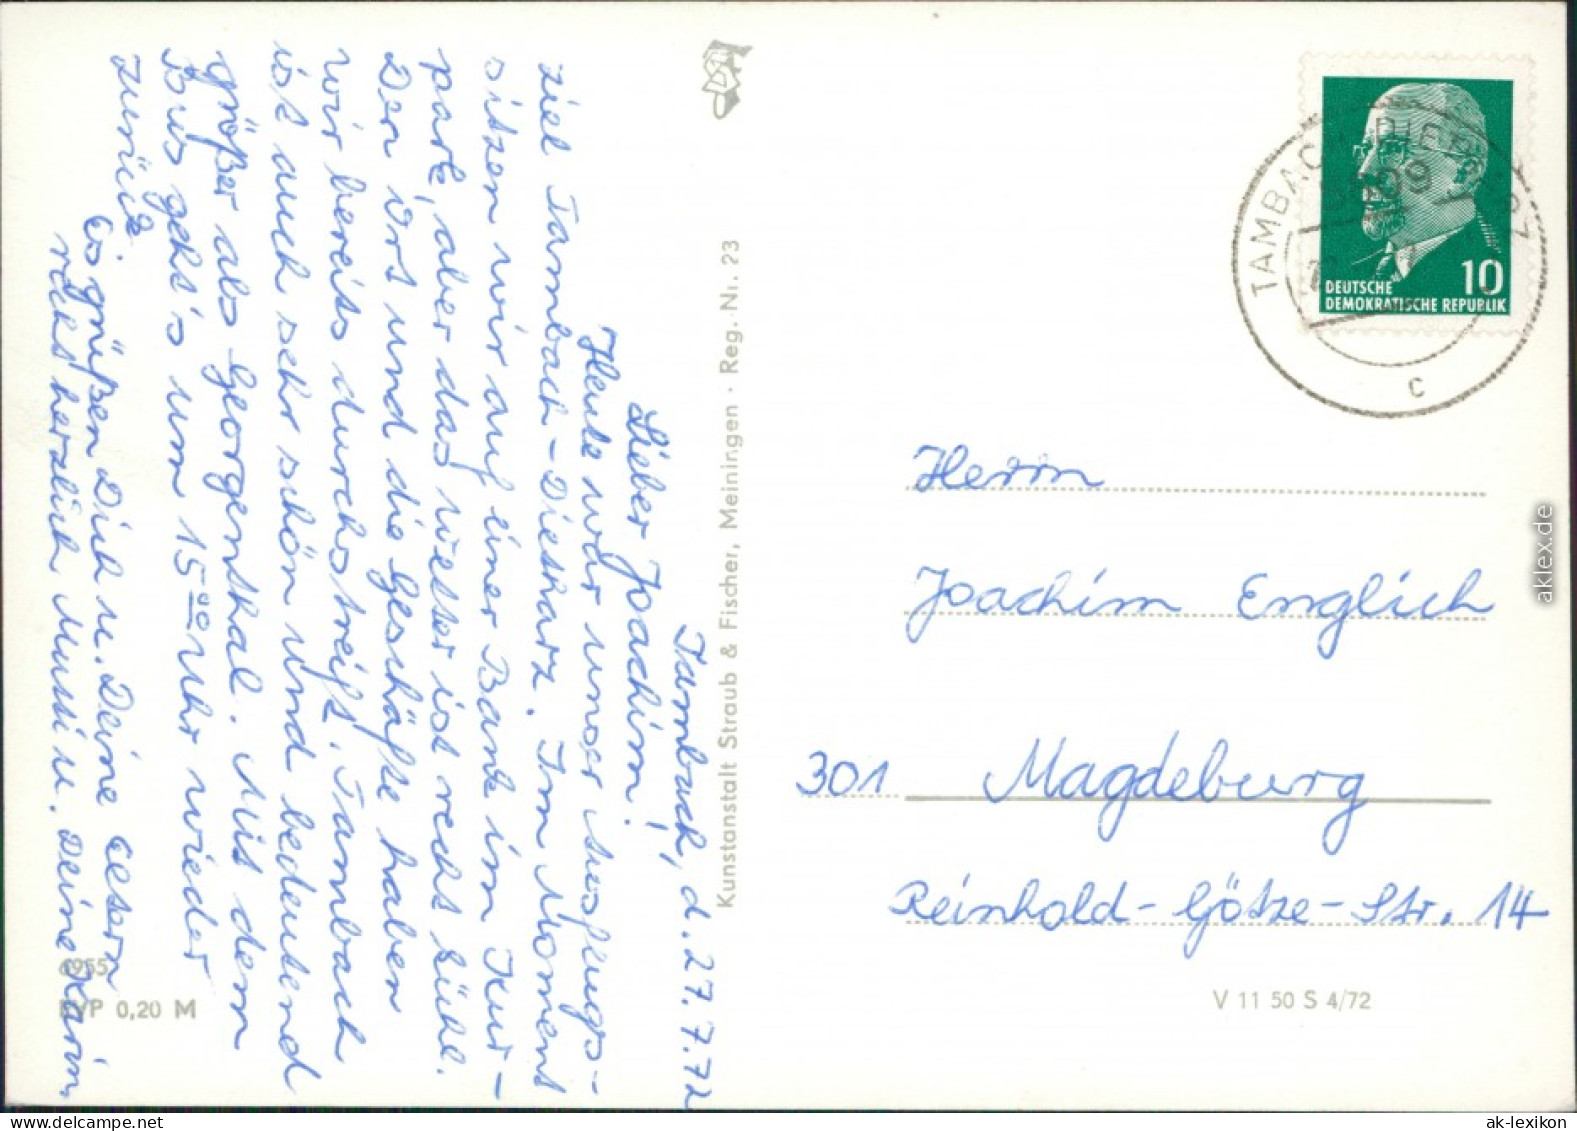 Tambach, d. 27.7.72
Lieber Joachim!
Heute war unser Ausflugs-
ziel Tambach-Dietharz. Im Moment
sitzen wir auf einer Bank im Kur-
park, aber das Wetter ist recht kühl.
Den Ort und die Geschäfte haben
wir bereits durchstreift. Tambach
ist auch sehr schön und bedeutend
größer als Georgenthal. Mit dem
Bus geht's um 15⁰⁰ Uhr wieder
zurück.
Es grüßen Dich u. Deine Eltern
recht herzlich Mussi u. Deine Karin
6955
EVP 0,20 M
Kunstanstalt Straub & Fischer, Meiningen · Reg. Nr. 23
TAMBACH-DIETHARZ
5809
c
10
DEUTSCHE
DEMOKRATISCHE REPUBLIK
Herrn
Joachim Englich
301 Magdeburg
Reinhold-Götze-Str. 14
V 11 50 S 4/72
aklex.de
ak-lexikon